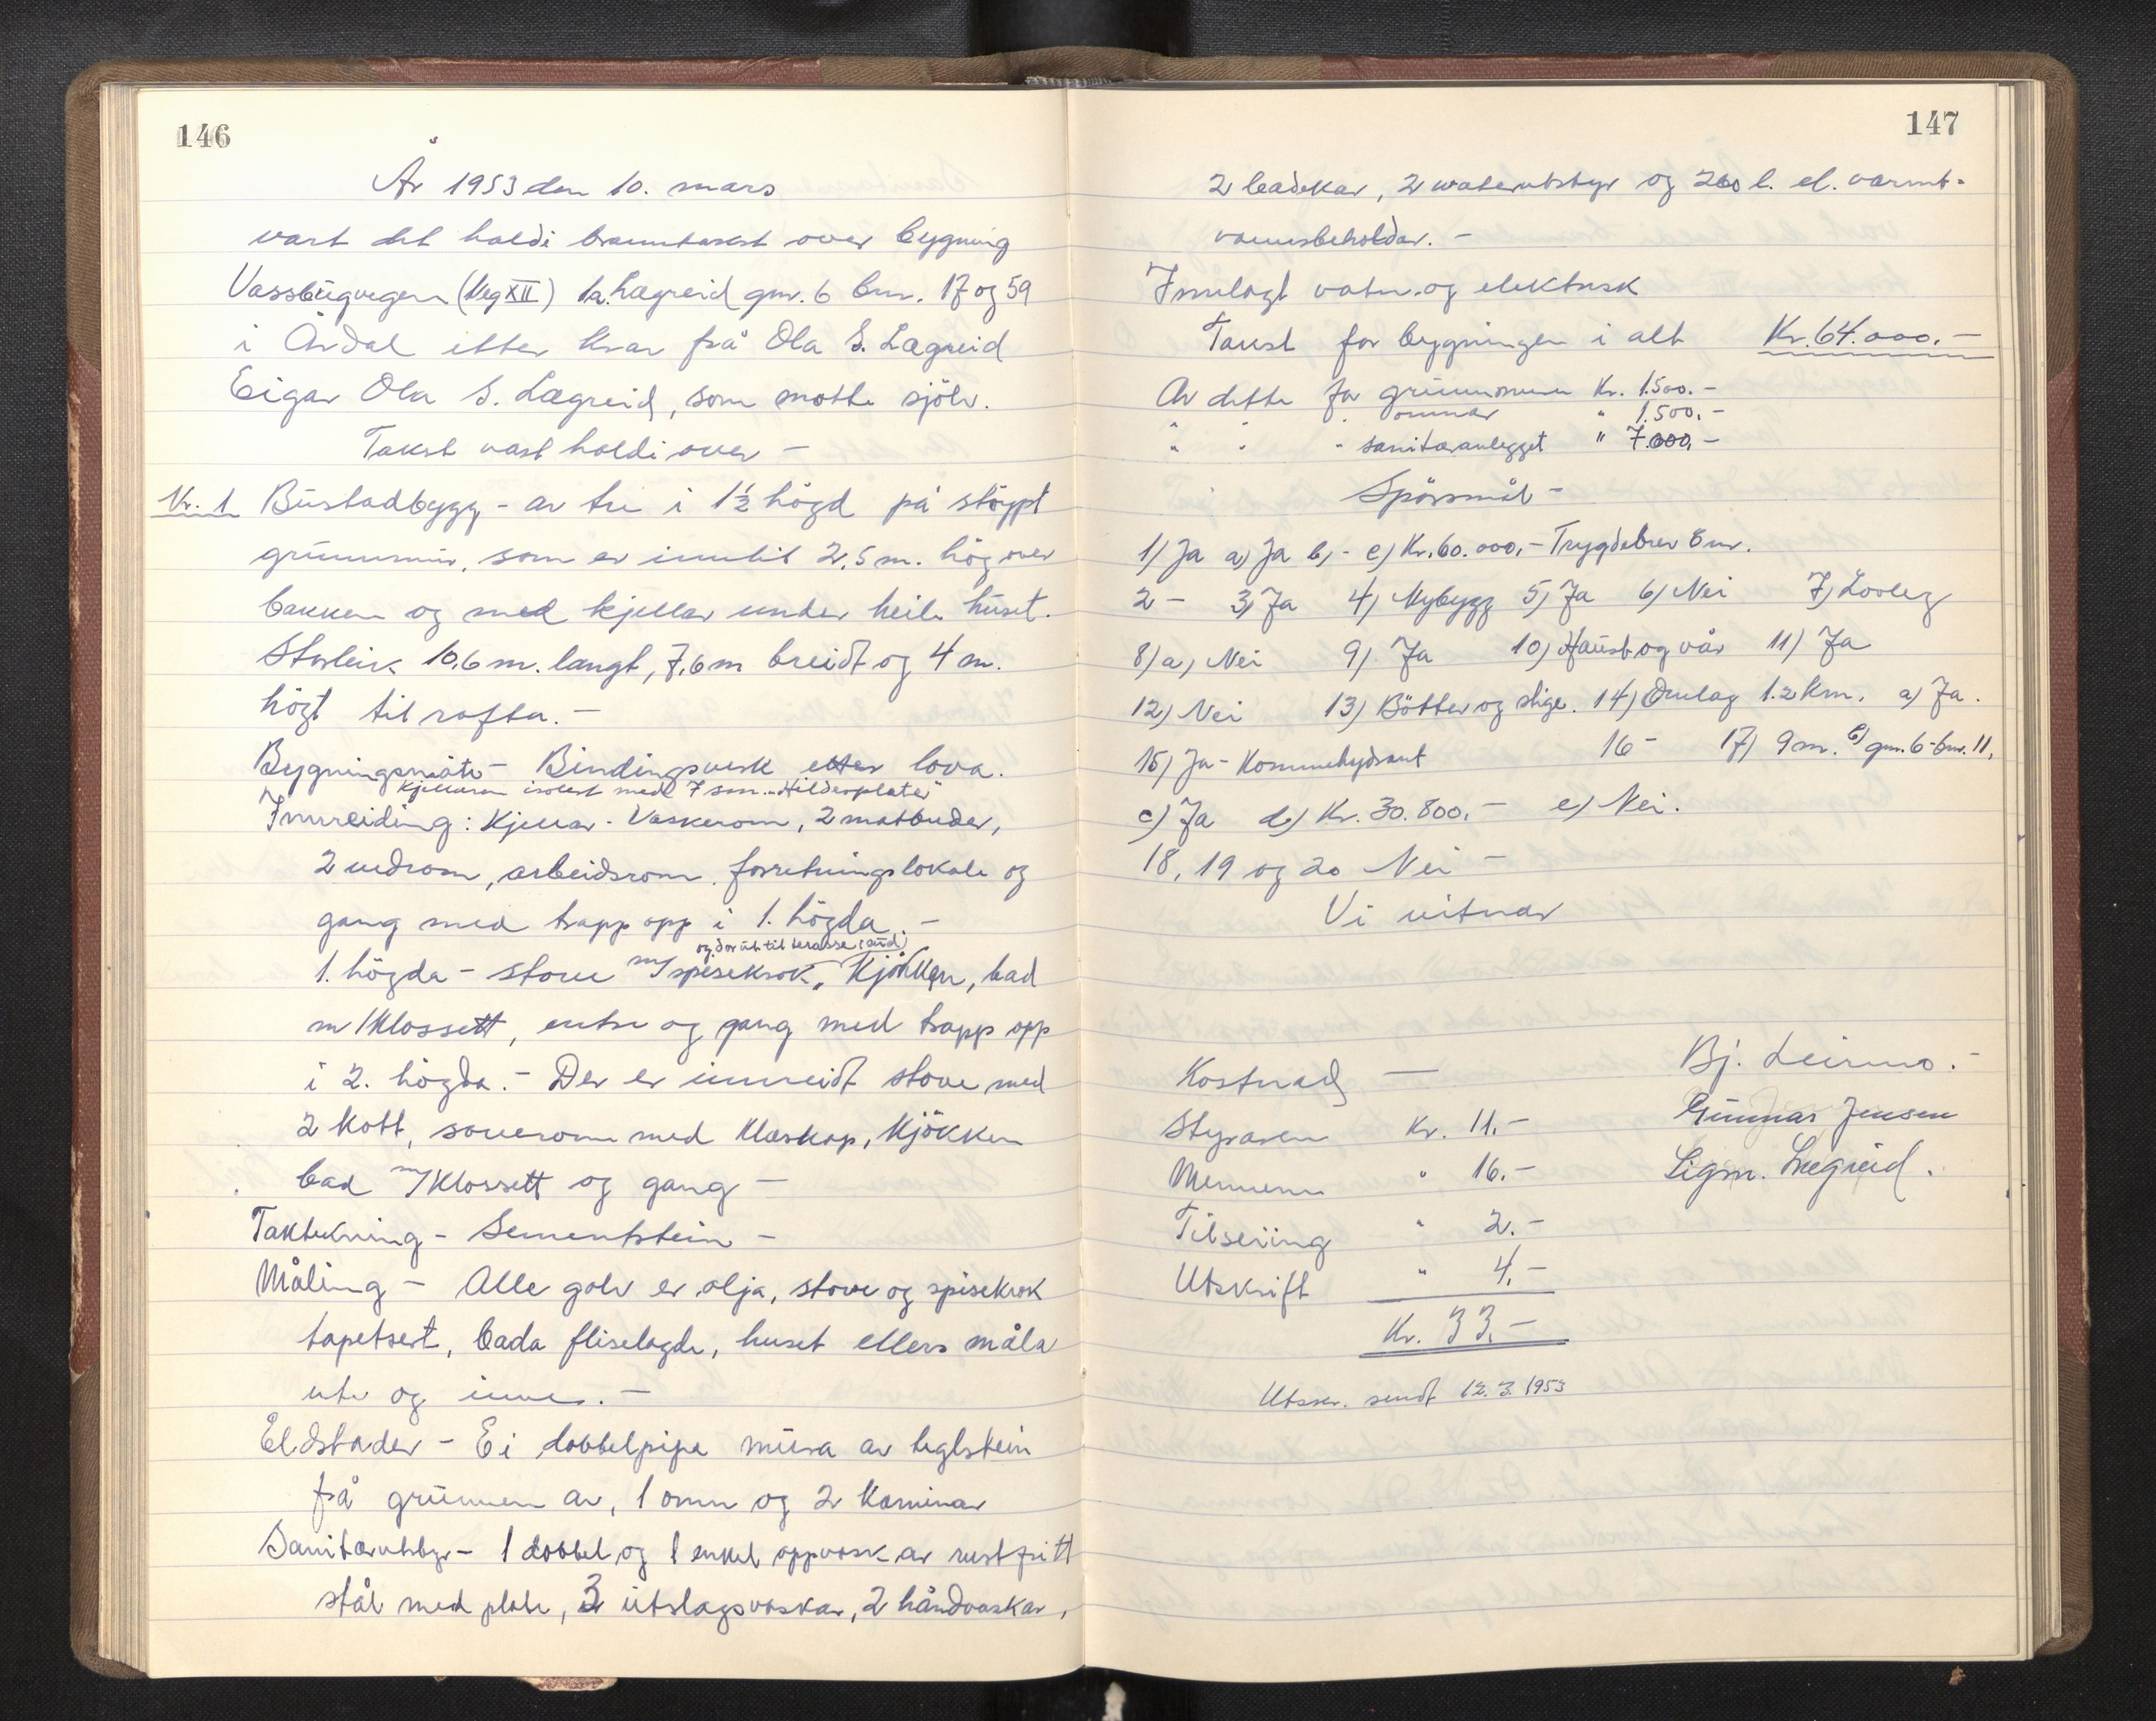 146
År 1953 den 10. mars
vart det haldi branntakst over bygning
Vassbygvegen (Veg XII) på Lægreid gnr. 6 bnr. 17 og 59
i Årdal etter krav frå Ola S. Lægreid
Eigar Ola S. Lægreid, som møtte sjölv.
Takst vart haldi over –
Nr. 1 Bustadbygg – av tre i 1½ högd på stöypt
grunnmur, som er inntil 2,5 m. hög over
bakken og med kjellar under heile huset.
Storleik 10,6 m. langt, 7,6 m breidt og 4 m.
högt til rafta. –
Bygningsmåte – Bindingsverk etter lova.
Kjellaren isolert med 7 sm. "Hilderplater"
Innreiding: Kjellar - Vaskerom, 2 matbuder,
2 vedrom, arbeidsrom, forretningslokale og
gang med trapp opp i 1. högda. –
og dör ut til terasse (aud)
1. högda – stove m/spisekrok, Kjökken, bad
m/Klossett, entre og gang med trapp opp
i 2. högda. – Der er innreidt stove med
2 kott, soverom med Klæskap, Kjökken
bad m/Klossett og gang –
Taktekning – Sementstein –
Måling – Alle golv er olja, stove og spisekrok
tapetsert, bada fliselagde, huset ellers måla
ute og inne. –
Eldstader – Ei dobbelpipe mura av teglstein
frå grunnen av, 1 omn og 2 kaminar
Sanitærutstyr – 1 dobbel og 1 enkel oppvask av rustfritt
stål med plate, 3 utslagsvaskar, 2 håndvaskar,
147
2 badekar, 2 waterutstyr og 200 l. el. varmt-
vannsbeholdar. –
Innlagt vatn og elektrisk
Takst for bygningen i alt Kr. 64.000.–
Av dette for grunnmuren Kr. 1.500.–
" omnar " 1.500.–
" " " sanitæranlegget " 7.000,–
Spörsmål –
1) Ja a) Ja b) - c) Kr. 60.000,– Trygdebrev Bnr.
2 – 3) Ja 4) Nybygg 5) Ja 6) Nei 7) Lovleg
8) a) Nei 9) Ja 10) Haust og vår 11) Ja
12) Nei 13) Bötter og stige. 14) Omlag 1.2 km. a) Ja.
15) Ja - Kommehydrant 16 – 17) 9 m. b) gnr. 6 - bnr. 11,
c) Ja d) Kr. 30.800.– e) Nei.
18, 19 og 20 Nei –
Vi vitnar
Bj. Leirmo. –
Gunnar Jensen
Sigm. Lægreid.
Kostnad –
Styraren Kr. 11.–
Mennene " 16.–
Tilseiing " 2.–
Utskrift " 4.–
Kr. 33.–
Utskr. sendt 12.3.1953